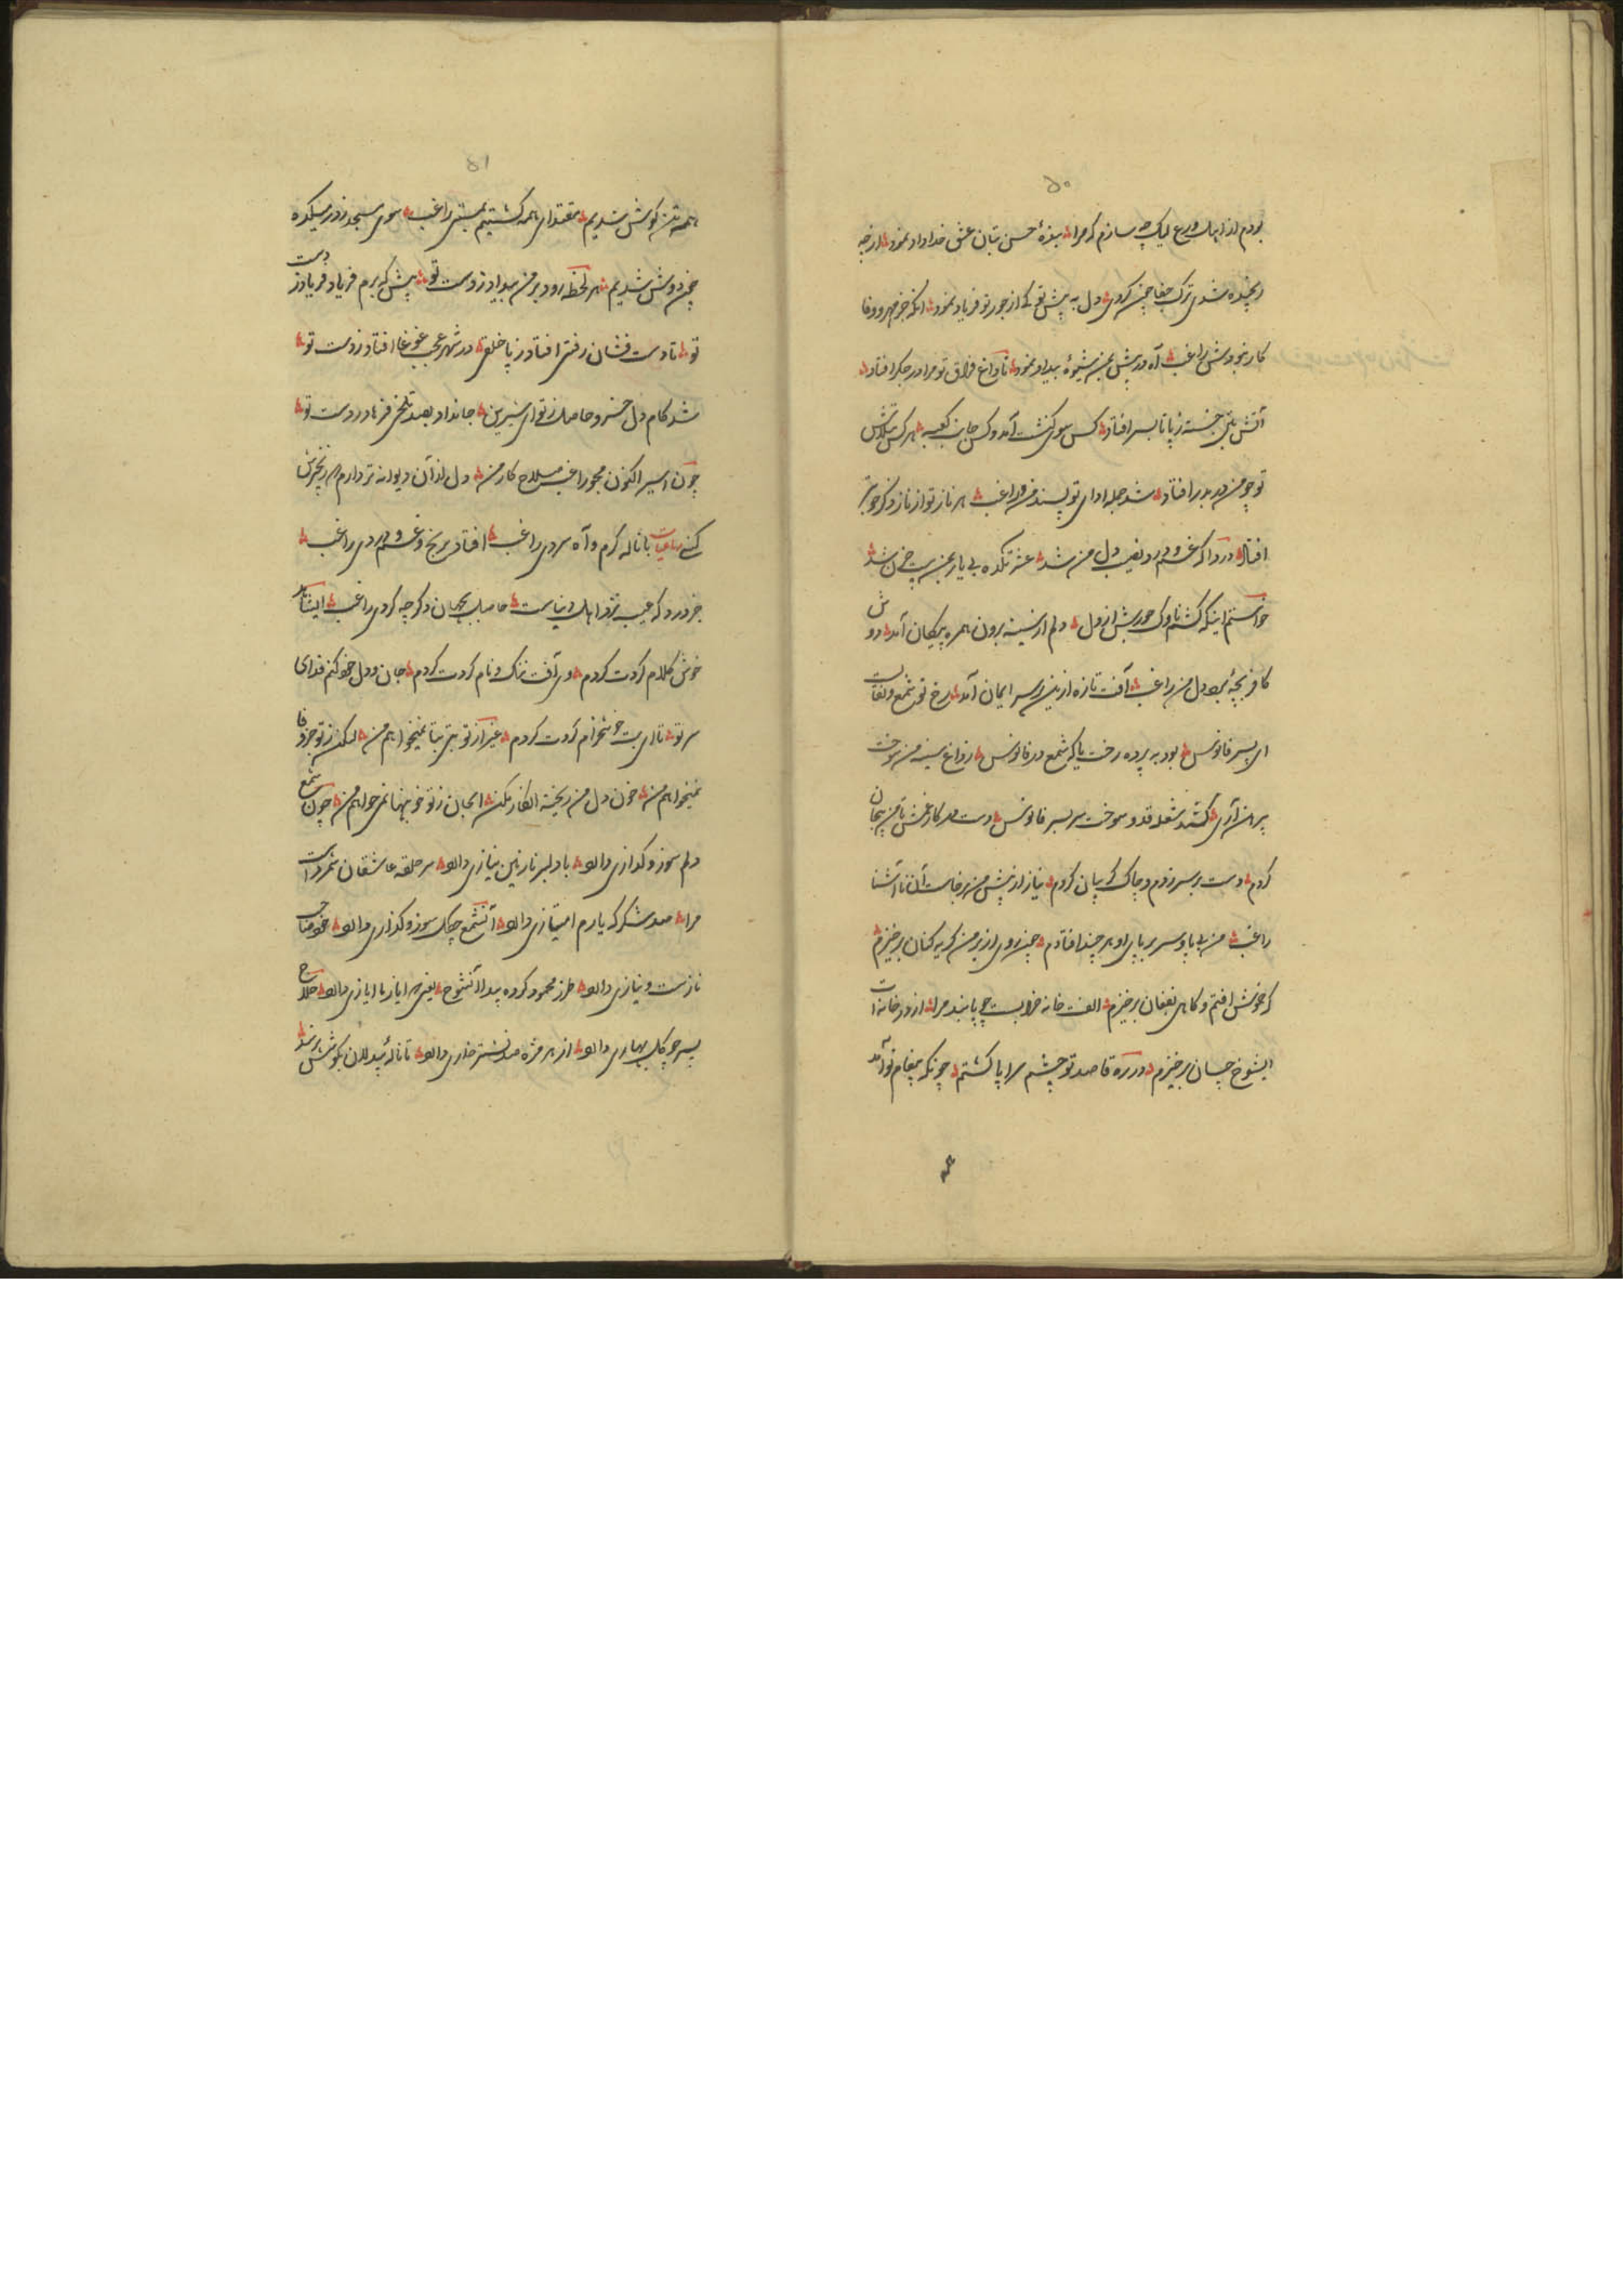 ۵۰
بودم از اهل ورع لیک چه سازم که مرا بندهٔ حسن بتان عشق خداداد نمود از چه
رنجیده شدی ترک جفا چون کردی دل به پیش تو کی از جور تو فریاد نمود آنکه جز مهر و وفا
کار نبودش راغب آه در پیش من شیوهٔ بیداد نمود تا داغ فراق تو مرا در جگر افتاد
آتش بتن خسته ز پا تا بسر افتاد کس سوی کنشت آمد و کس جانب کعبه هر کس بتلاش
تو چو من در بدر افتاد شد جمله ادای تو پسند من راغب هر ناز تو از ناز دگر خوبتر
افتاد دردا که غم و درد نصیب دل من شد عشرتکده بی یار بمن بیت حزن شد
خواستم اینکه کشم ناوک جورش از دل دلم از سینه برون همره پیکان آمد دوش
کافر بچهٔ برد دل من راغب آفت تازه ازین بر سر ایمان آمد رخ تو شمع و نقابت
ای پسر فانوس بود به پرده رخت یا که شمع در فانوس ز داغ سینه من سوخت
پیرهن آری کشید شعله قد و سوخت سر بسر فانوس دست در کار غمش تا من بیجان
کردم دست بر سر زدم و چاک گریبان کردم نیاز از پیش من برخاست آن ناآشنا
راغب من بی پا و سر بر پای او هر چند افتادم چون روی از بر من گریه کنان برخیزم
که خموش افتم و گاهی بفغان برخیزم الفت خانه خرابیست چو پابند مرا از در خانه‌ات
ایشوخ چسان برخیزم در ره قاصد تو چشم سراپا گشتم چونکه پیغام تو آمد
همه
۵۱
همه تن گوش شدیم مقتدای همه گشتیم بمستی راغب سوی مسجد ز در میکده
چون دوش شدیم هر لحظه رود بر من بیداد ز دست تو پیش که برم فریاد فریاد ز دست
تو تا دست فشان رفتی افتاد ز پا خلقی در شهر عجب غوغا افتاد ز دست تو
شد کام دل خسرو حاصل ز تو ای شیرین جان داد بصد تلخی فرهاد ز دست تو
چون اسیر اکنون مجو راغب صلاح کار من دل از آن دیوانه تر دارم که زنجیرش
کنی رباعیات با ناله گرم و آه سردی راغب افتاد برنج و غم و دردی راغب
جز درد که عیب نزد اهل دنیاست حاصل بجهان دگر چه کردی راغب ایشاه
خوش کلام کردت کردم وی آفت ننگ و نام کردت کردم جان و دل خود کنم فدای
سر تو تا ای بت خوشخرام کردت کردم غیر از تو بتی بتا نمیخواهم من لیکن ز تو جز وفا
نمیخواهم من خون دل من ریخته انکار مکن ایجان ز تو خونبها نمی خواهم من چون شمع
دلم سوز و گدازی دارد با دلبر نازنین نیازی دارد سر حلقه عاشقان شمردست
مرا صد شکر که یارم امتیازی دارد آنشمع چگل سوز و گدازی دارد خود صاحب
نازست و نیازی دارد طرز محمود کرده پیدا آنشوخ یعنی که ایاز ما ایازی دارد حلاج
پسر چو گل بهاری دارد از هر مژه صد نشتر خاری دارد تا نالهٔ بیدلان بگوشش نرسد